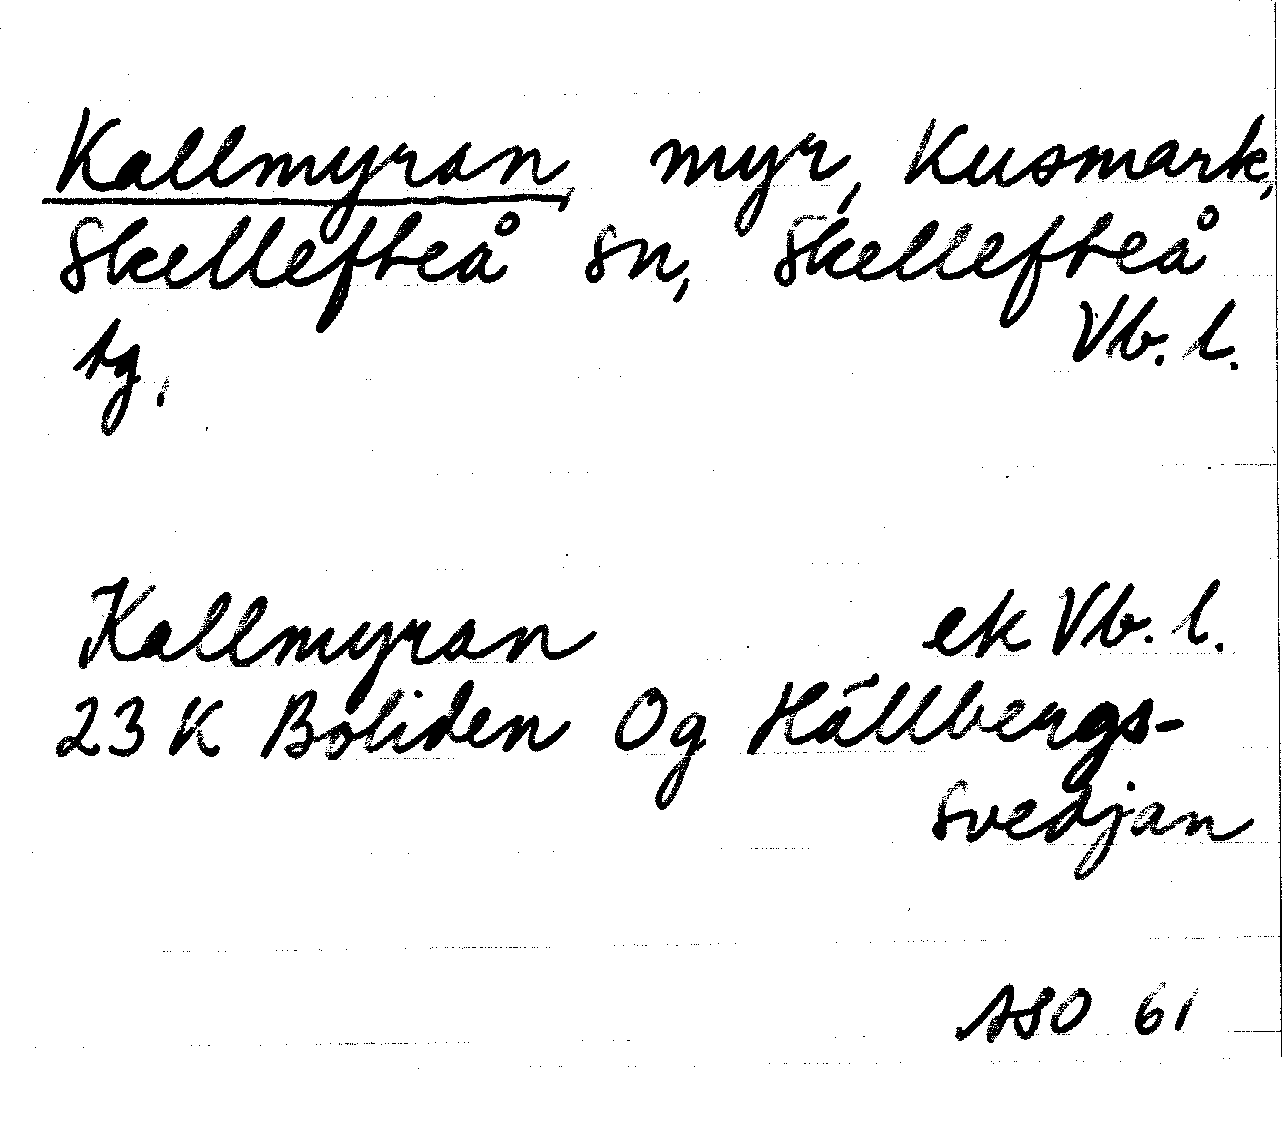 Kallmyran, myr, Kusmark,
Skellefteå sn, Skellefteå
tg. Vb. l.
Kallmyran ek Vb. l.
23 K Boliden 0g Hällbergs-
svedjan
ASO 61